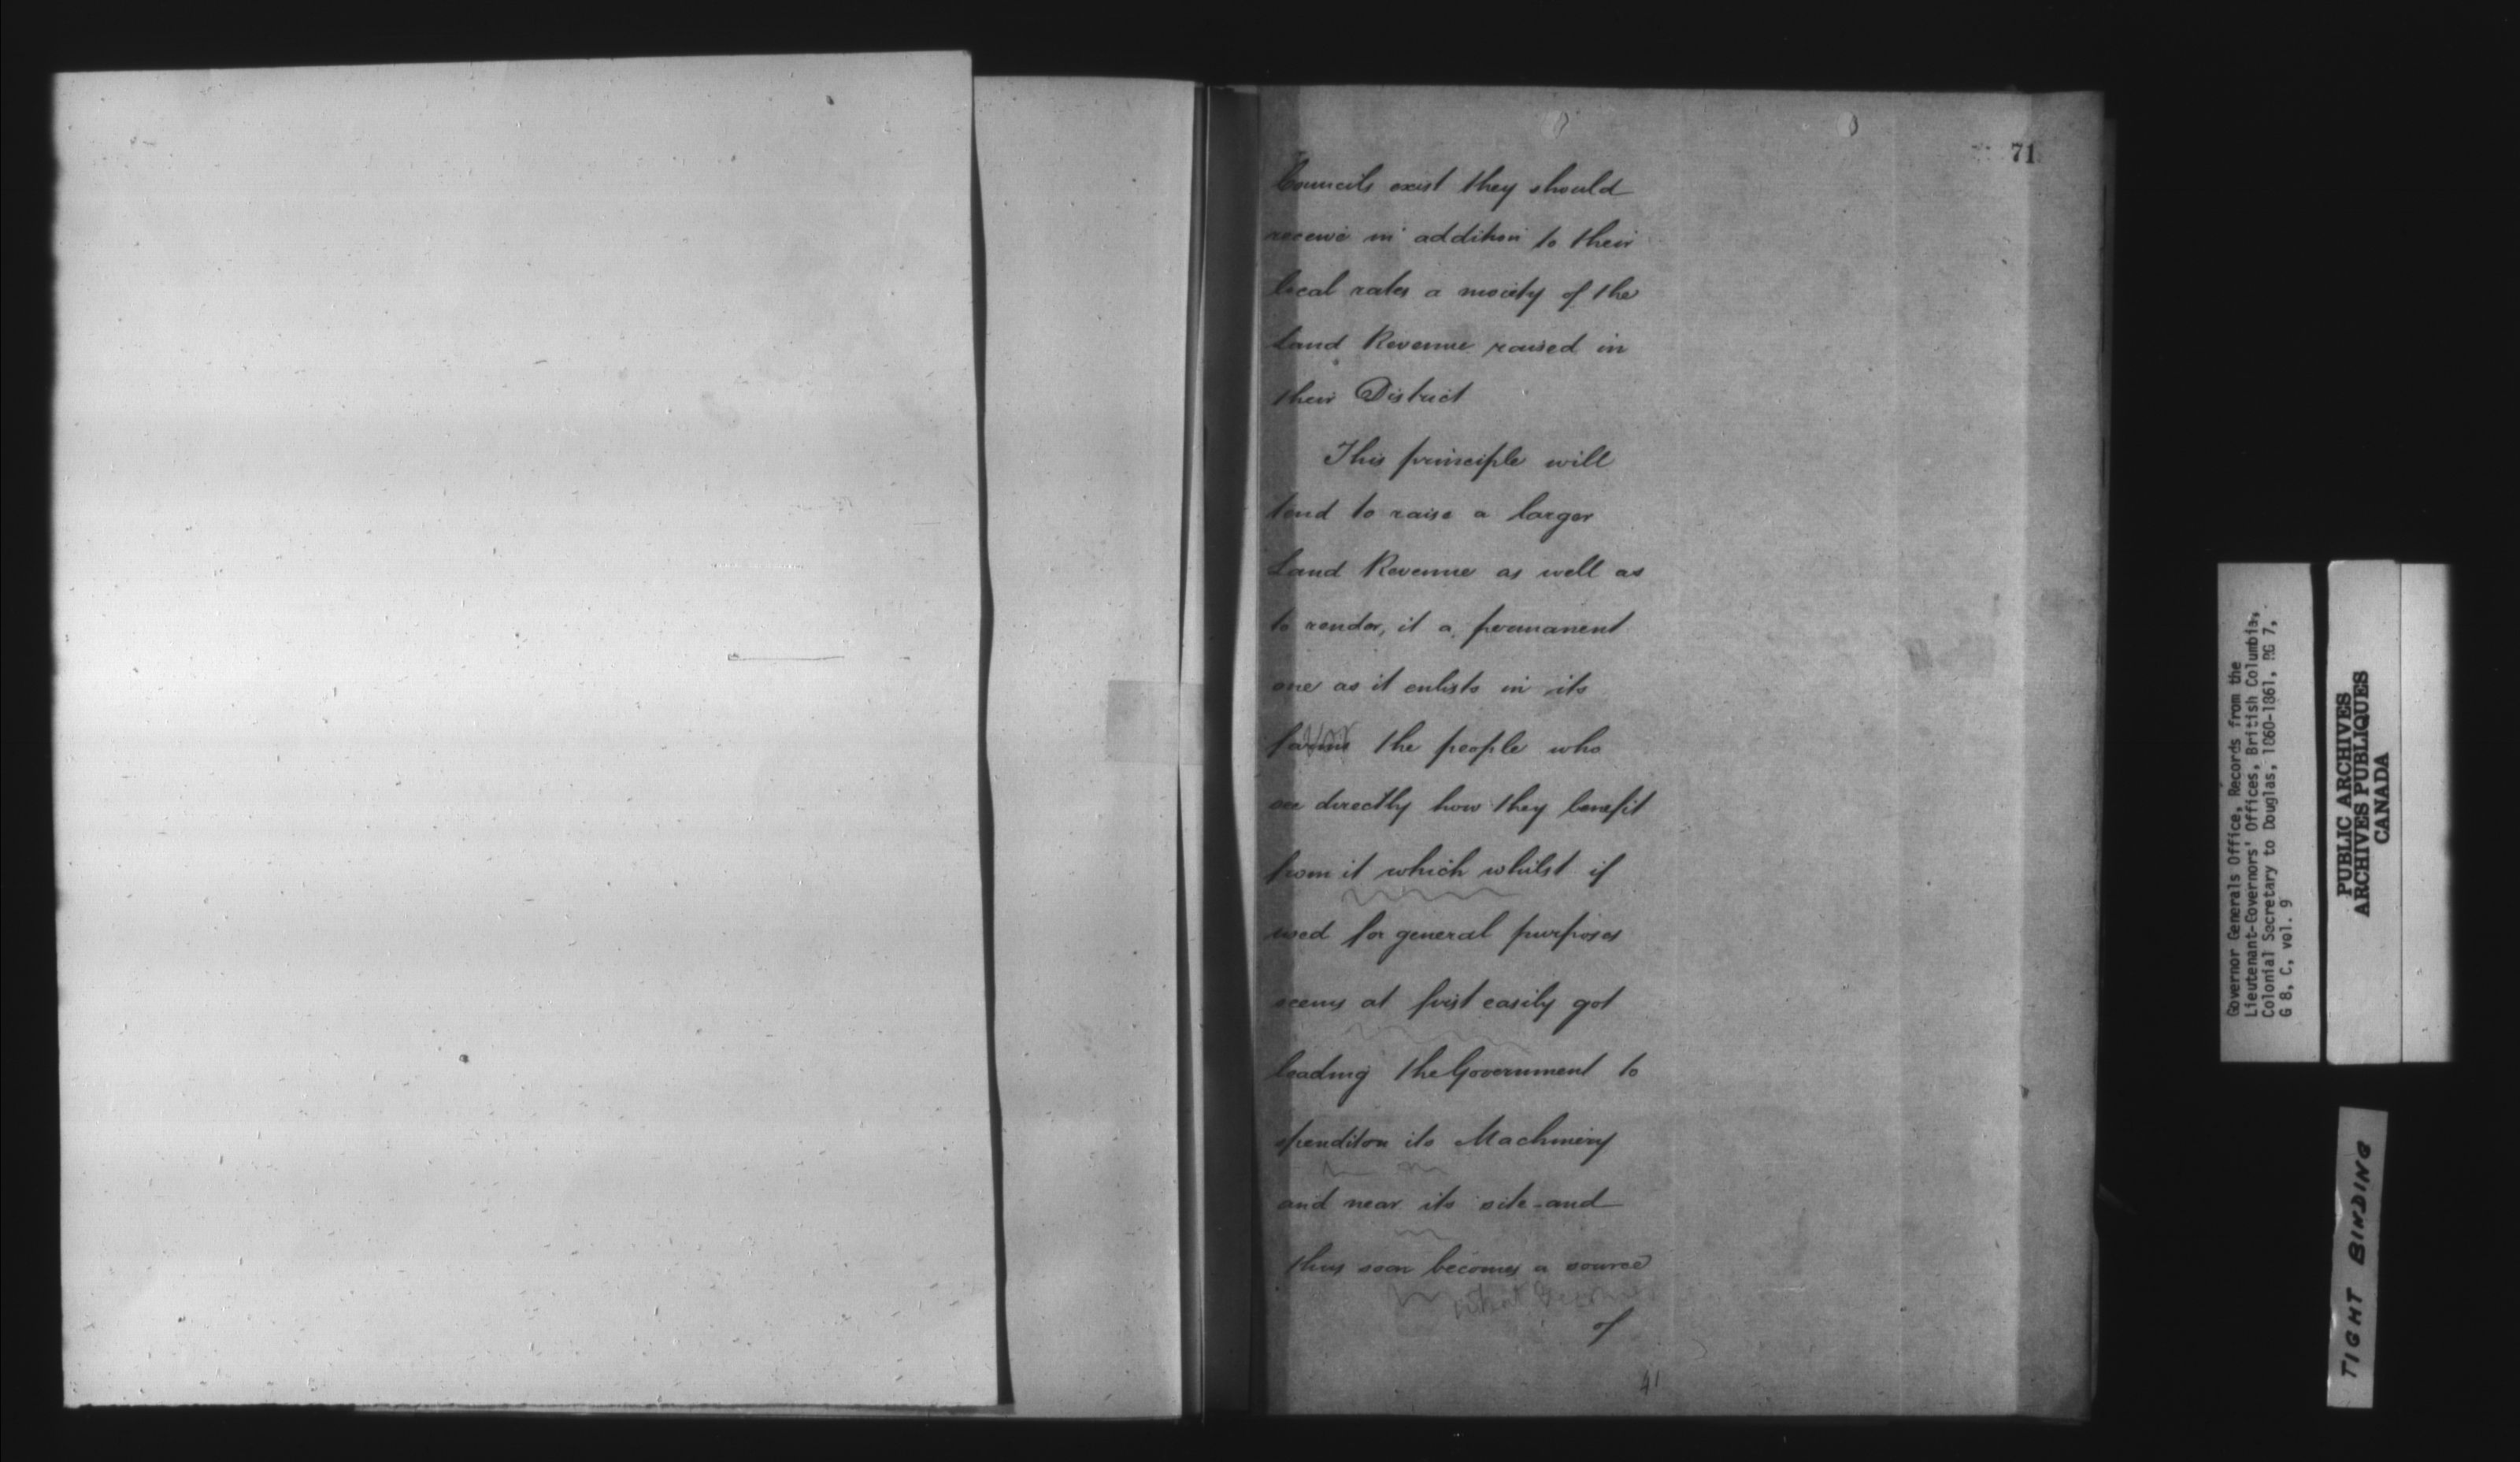 71
Councils exist they should
receive in addition to their
local rates a moiety of the
Land Revenue raised in
their District
This principle will
tend to raise a larger
Land Revenue as well as
to render, it a permanent
one as it enlists in its
the people who
see directly how they benefit
from it which whilst if
used for general purposes
seems at first easily got
leading the Government to
spend it on its Machinery
and near its site - and
thus soon becomes a source
what becomes
of
41
Governor Generals Office, Records from the
Lieutenant-Governors' Offices, British Columbia,
Colonial Secretary to Douglas, 1860-1861, RG 7,
G 8, C, vol. 9
PUBLIC ARCHIVES
ARCHIVES PUBLIQUES
CANADA
TIGHT BINDING